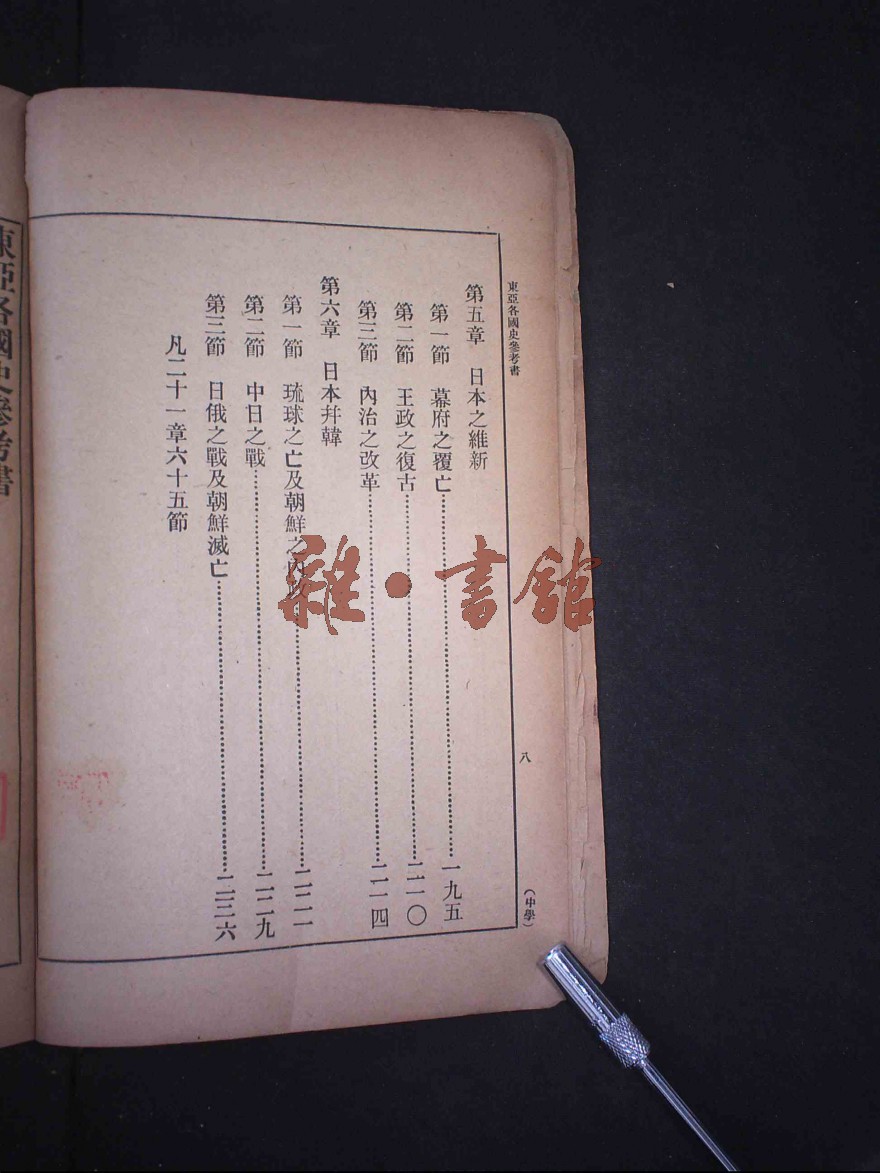 東亞各國史參考書
八
(中學)
第五章 日本之維新
第一節 幕府之覆亡……一九五
第二節 王政之復古……二一〇
第三節 內治之改革……二一四
第六章 日本幷韓
第一節 琉球之亡及朝鮮之內政……二二一
第二節 中日之戰……二二九
第三節 日俄之戰及朝鮮滅亡……二三六
凡二十一章六十五節
東亞各國史參考書
雜·書館